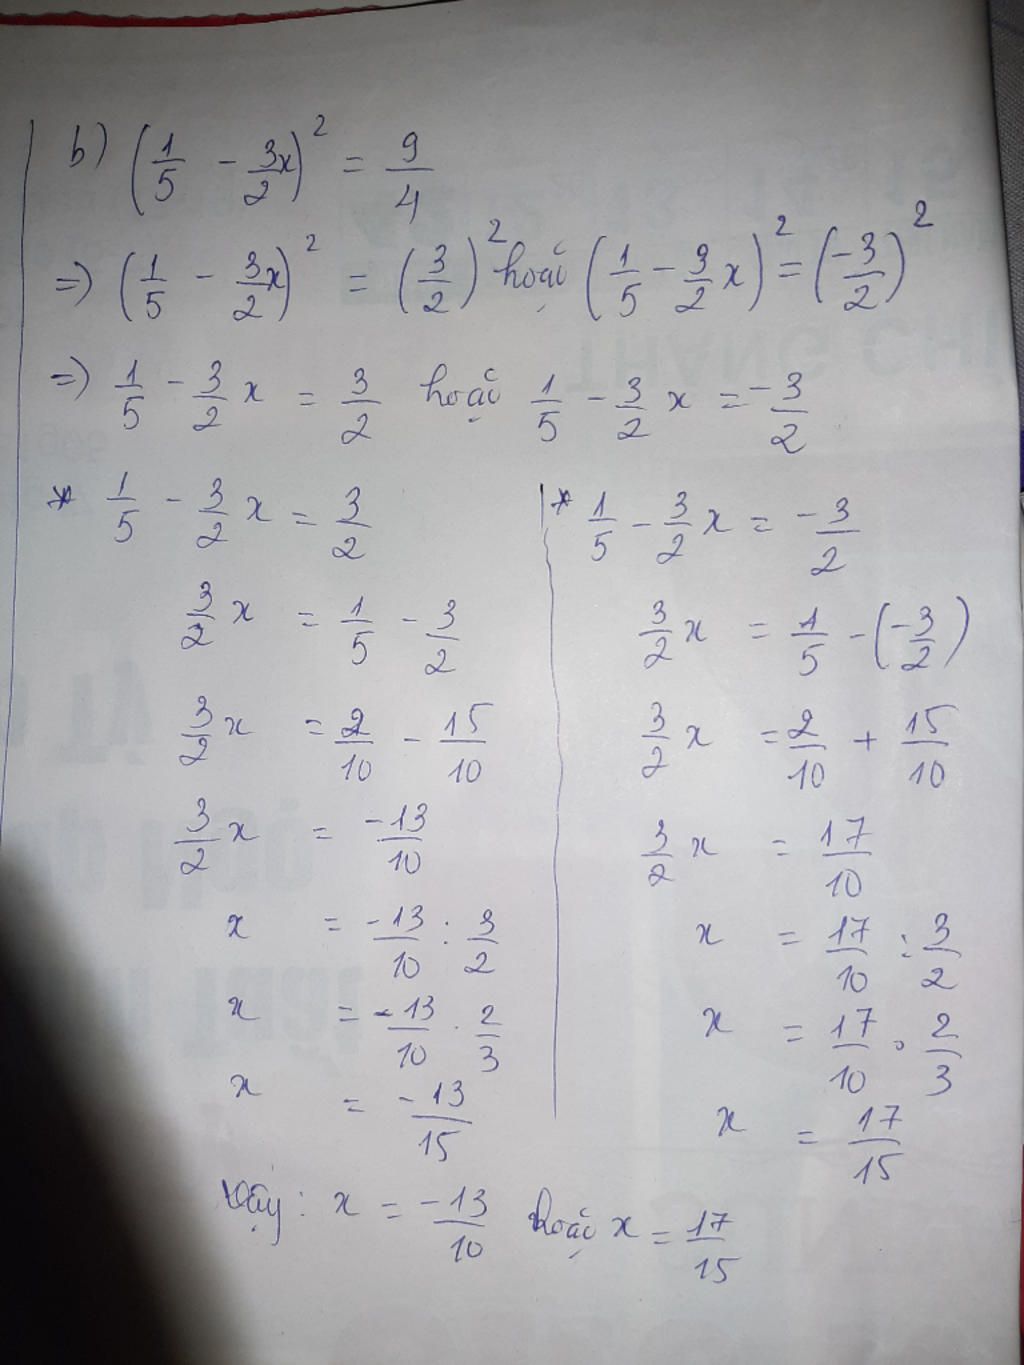 b) (1/5 - 3/2 x)² = 9/4
=> (1/5 - 3/2 x)² = (3/2)² hoặc (1/5 - 3/2 x)² = (-3/2)²
=> 1/5 - 3/2 x = 3/2 hoặc 1/5 - 3/2 x = -3/2
* 1/5 - 3/2 x = 3/2
3/2 x = 1/5 - 3/2
3/2 x = 2/10 - 15/10
3/2 x = -13/10
x = -13/10 : 3/2
x = -13/10 . 2/3
x = -13/15
* 1/5 - 3/2 x = -3/2
3/2 x = 1/5 - (-3/2)
3/2 x = 2/10 + 15/10
3/2 x = 17/10
x = 17/10 : 3/2
x = 17/10 . 2/3
x = 17/15
Vậy: x = -13/10 hoặc x = 17/15